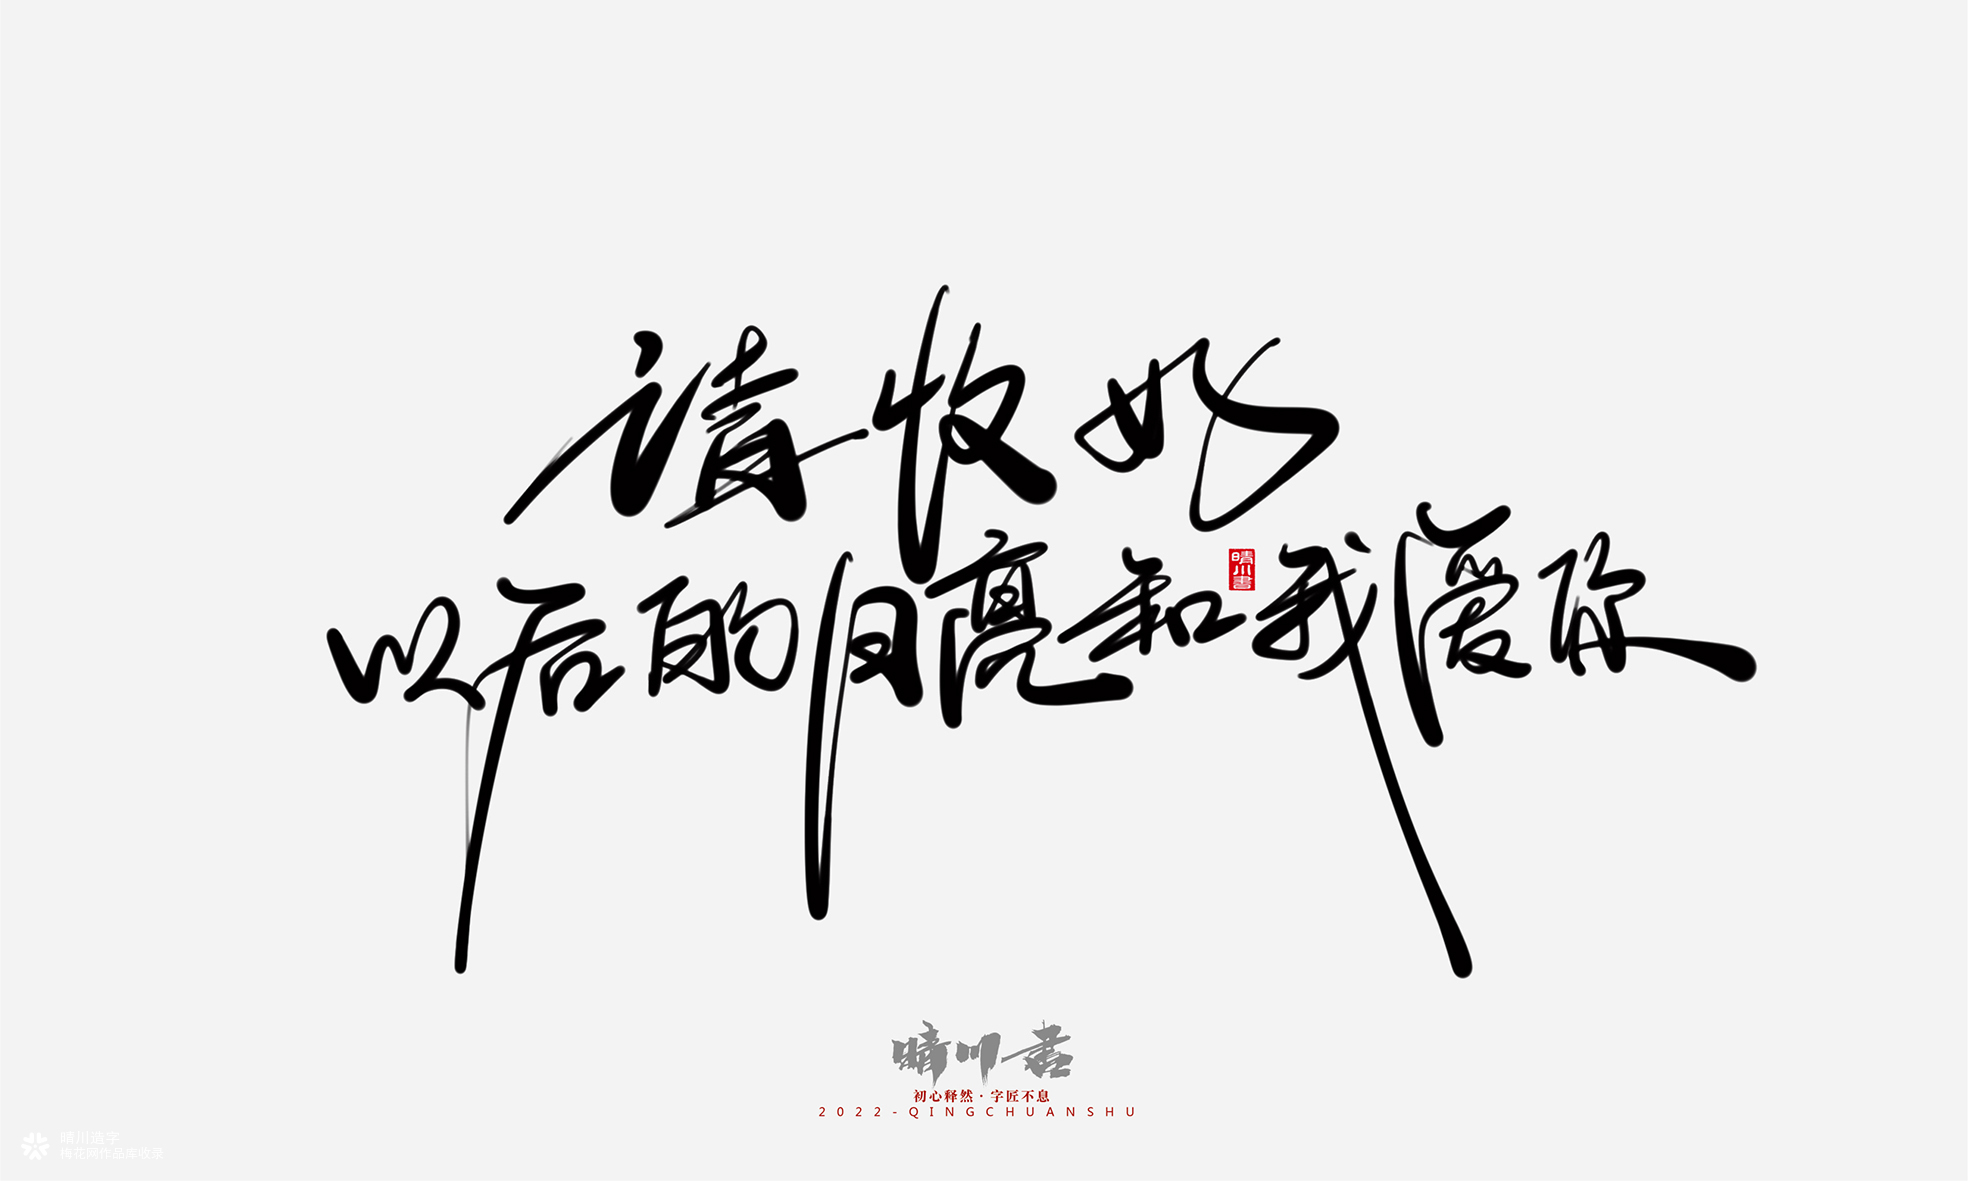 请收好
以后的月亮和我爱你
晴川書
晴川書
初心释然·字匠不息
2022-QINGCHUANSHU
晴川造字
梅花网作品库收录